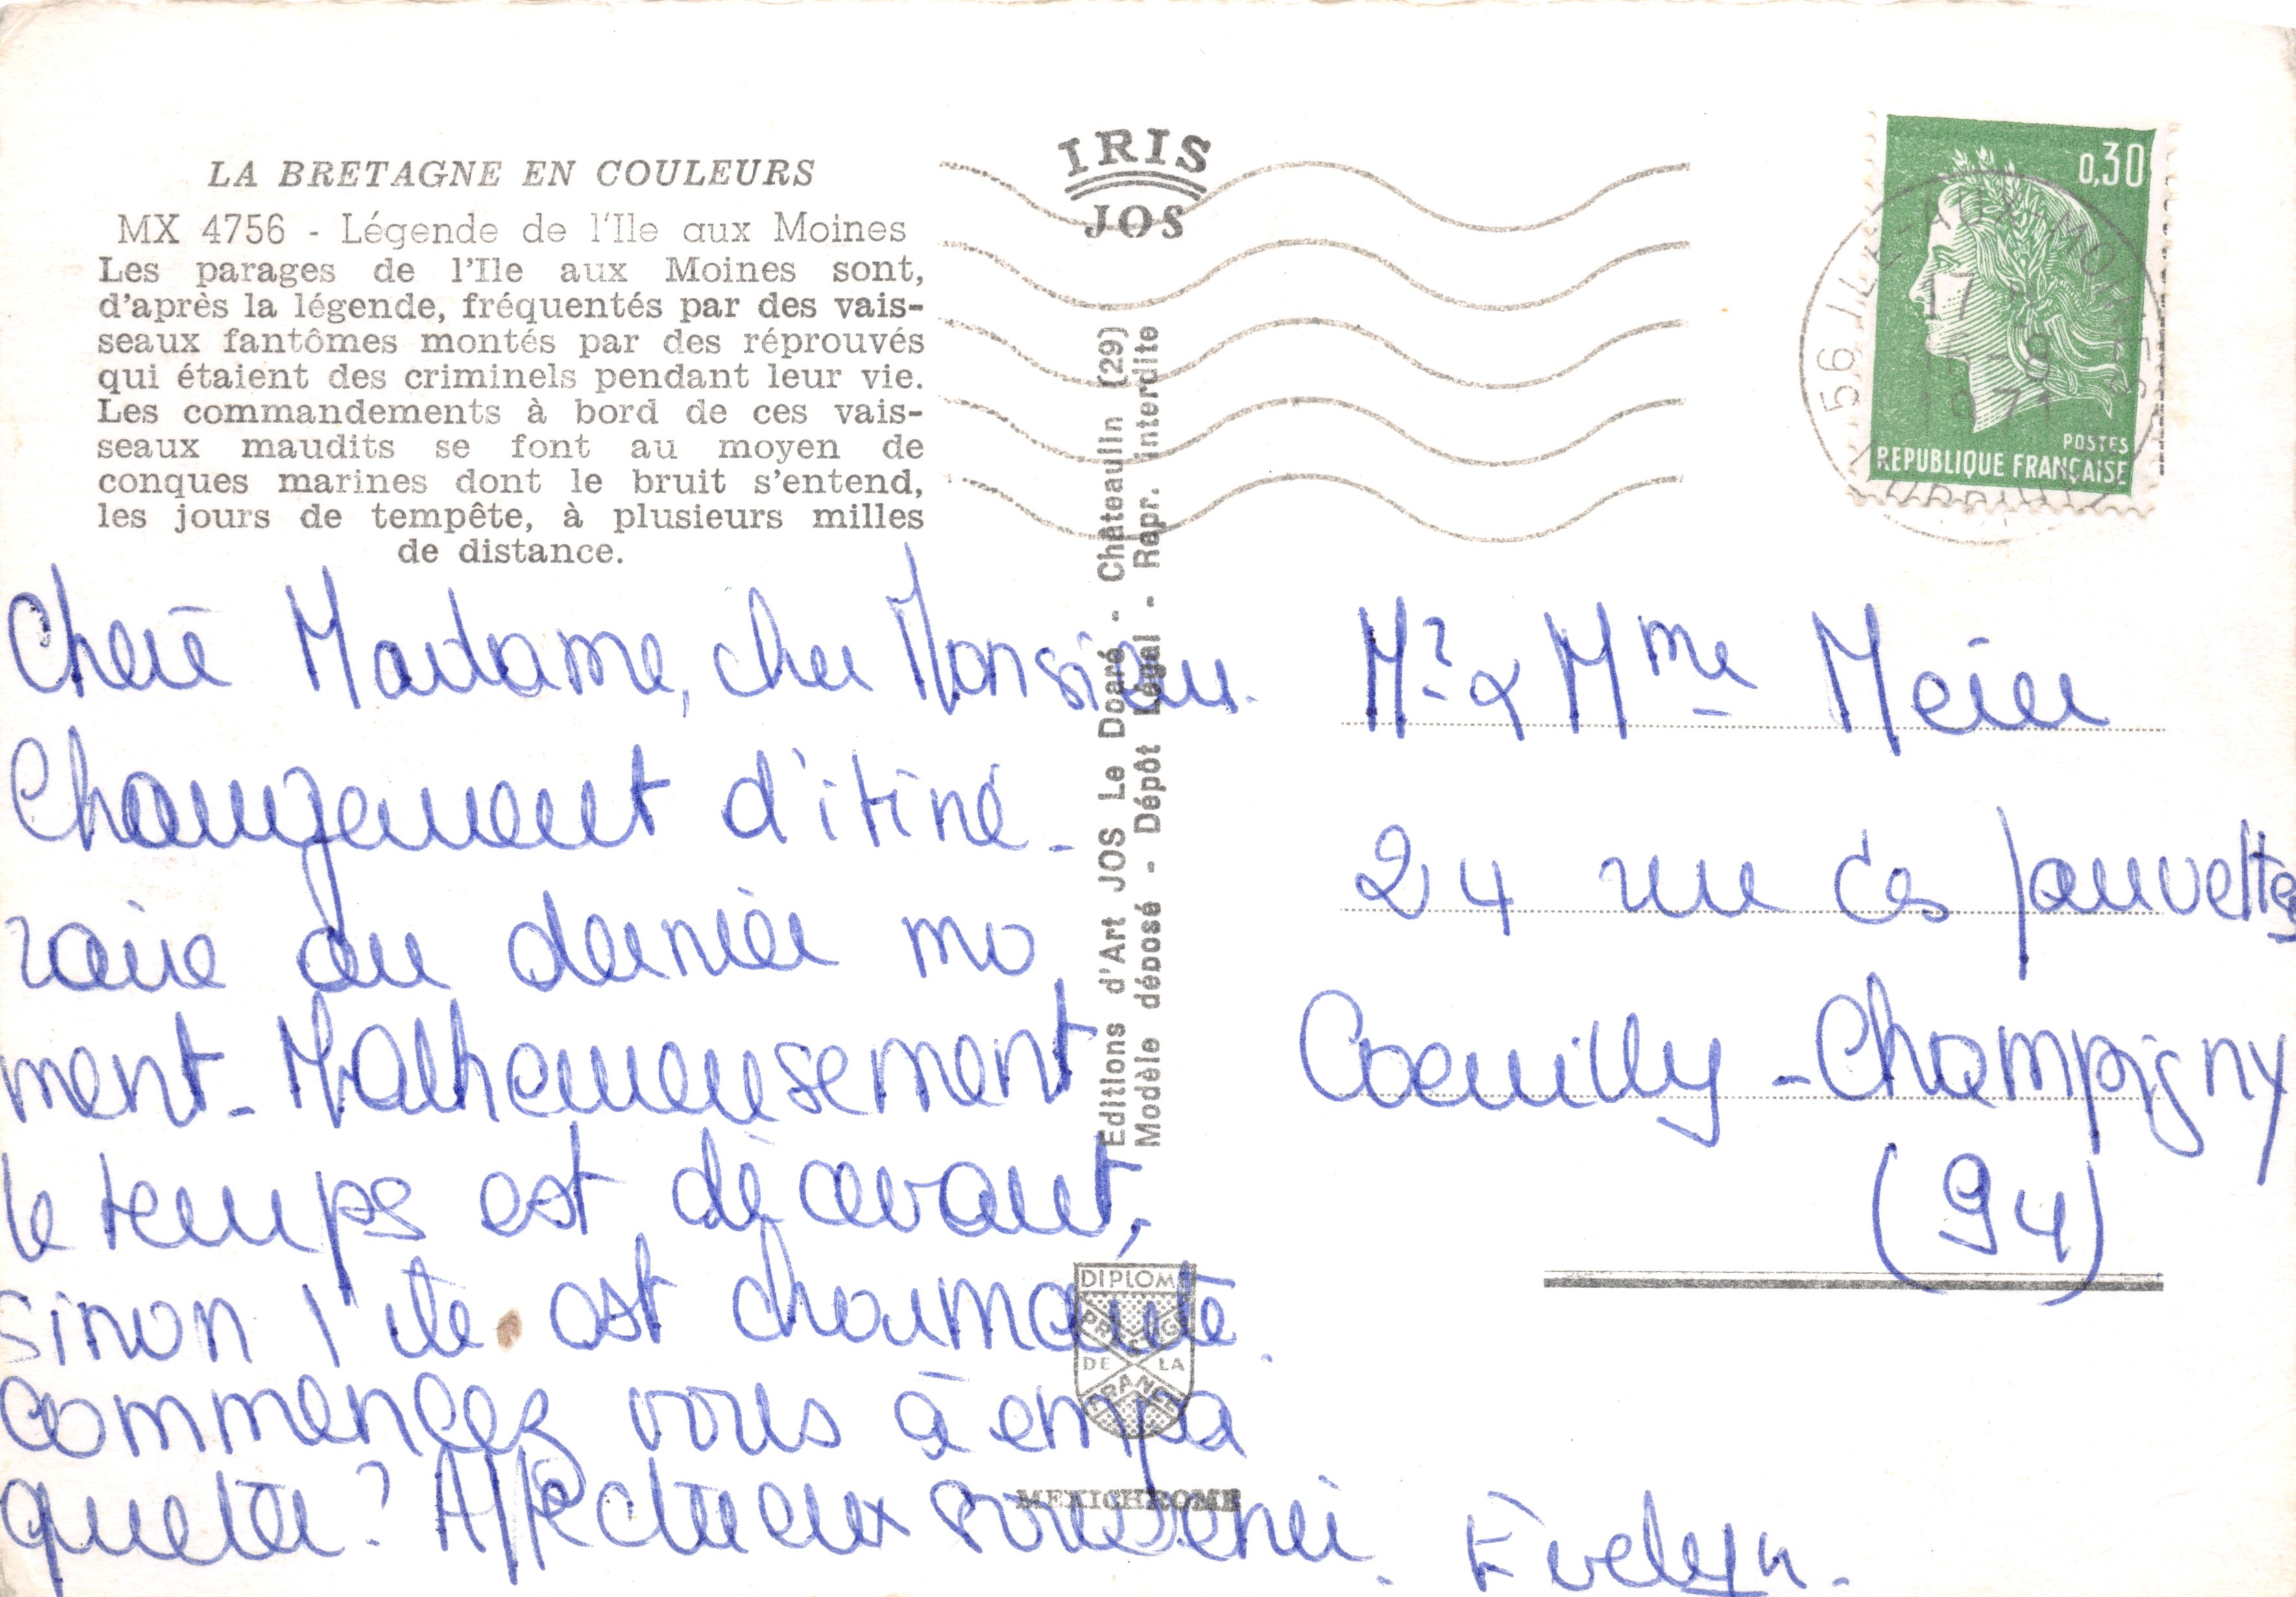 LA BRETAGNE EN COULEURS
MX 4756 - Légende de l'Ile aux Moines
Les parages de l'Ile aux Moines sont,
d'après la légende, fréquentés par des vais-
seaux fantômes montés par des réprouvés
qui étaient des criminels pendant leur vie.
Les commandements à bord de ces vais-
seaux maudits se font au moyen de
conques marines dont le bruit s'entend,
les jours de tempête, à plusieurs milles
de distance.
IRIS
JOS
0,30
POSTES
REPUBLIQUE FRANÇAISE
56 ILE-AUX-MOINES
17
-8
1971
Chère Madame, cher Monsieur.
Changement d'itiné-
raire au dernier mo
ment - Malheureusement
le temps est décevant,
sinon l'île est charmante.
Commencez vous à empa
queter ? Affectueux souvenir. Evelyn.
Editions d'Art JOS Le Doaré - Châteaulin (29)
Modèle déposé - Dépôt Légal - Repr. interdite
DIPLOME
PRESTIGE
DE LA
FRANCE
MEXICHROME
Mr & Mme Meier
24 rue des fauvettes
Coeuilly - Champigny
(94)